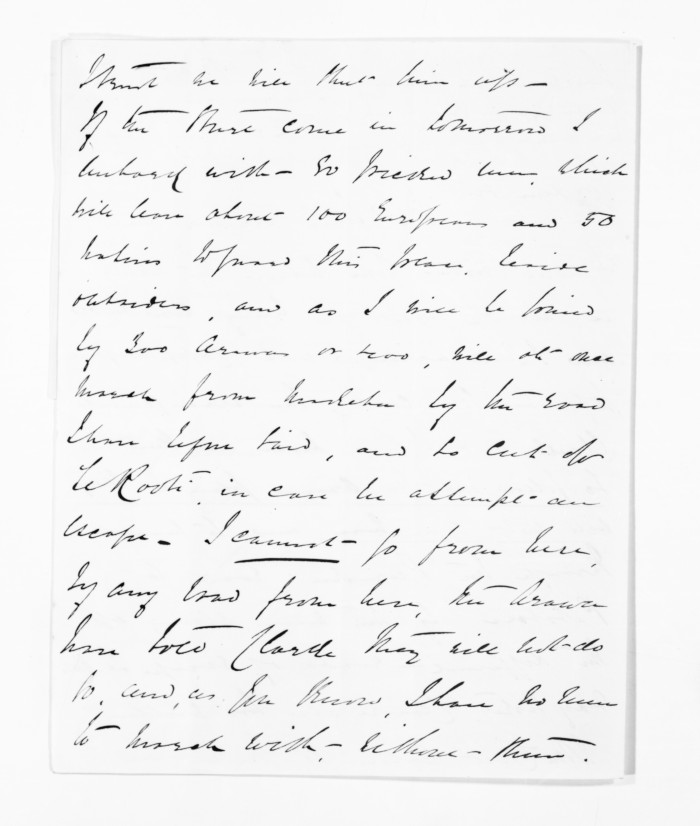 I trust we will shut him up —
If the Sturt come in tomorrow I
embark with — 50 picked men, which
will leave about 100 Europeans and 50
Natives to guard this place, beside
outsiders, and as I will be joined
by 300 Arawas or 400, will at once
march from Maketu by the road
I have before said, and so cut off
Te Kooti, in case he attempt an
escape — I cannot — go from here,
by any road from here, the Arawa
have told Clarke they will not do
so, and, as you know, I have no men
to march with, without — them.